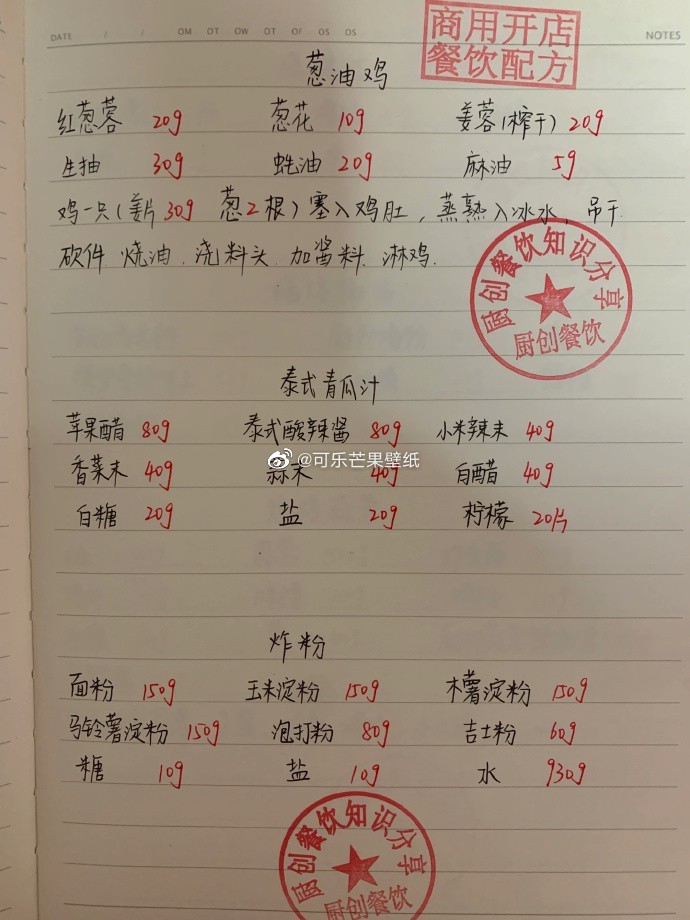 DATE / / OM OT OW OT OF OS OS NOTES
商用开店
餐饮配方
葱油鸡
红葱蓉 20g 葱花 10g 姜蓉(榨干) 20g
生抽 30g 蚝油 20g 麻油 5g
鸡一只(姜片 30g 葱2根)塞入鸡肚,蒸熟入冰水,吊干
砍件 烧油.浇料头.加酱料.淋鸡.
厨创餐饮知识分享
厨创餐饮
泰式青瓜汁
苹果醋 80g 泰式酸辣酱 80g 小米辣末 40g
@可乐芒果壁纸
香菜末 40g 蒜末 40g 白醋 40g
白糖 20g 盐 20g 柠檬 20片
炸粉
面粉 150g 玉米淀粉 150g 木薯淀粉 150g
马铃薯淀粉 150g 泡打粉 80g 吉士粉 60g
糖 10g 盐 10g 水 930g
厨创餐饮知识分享
厨创餐饮